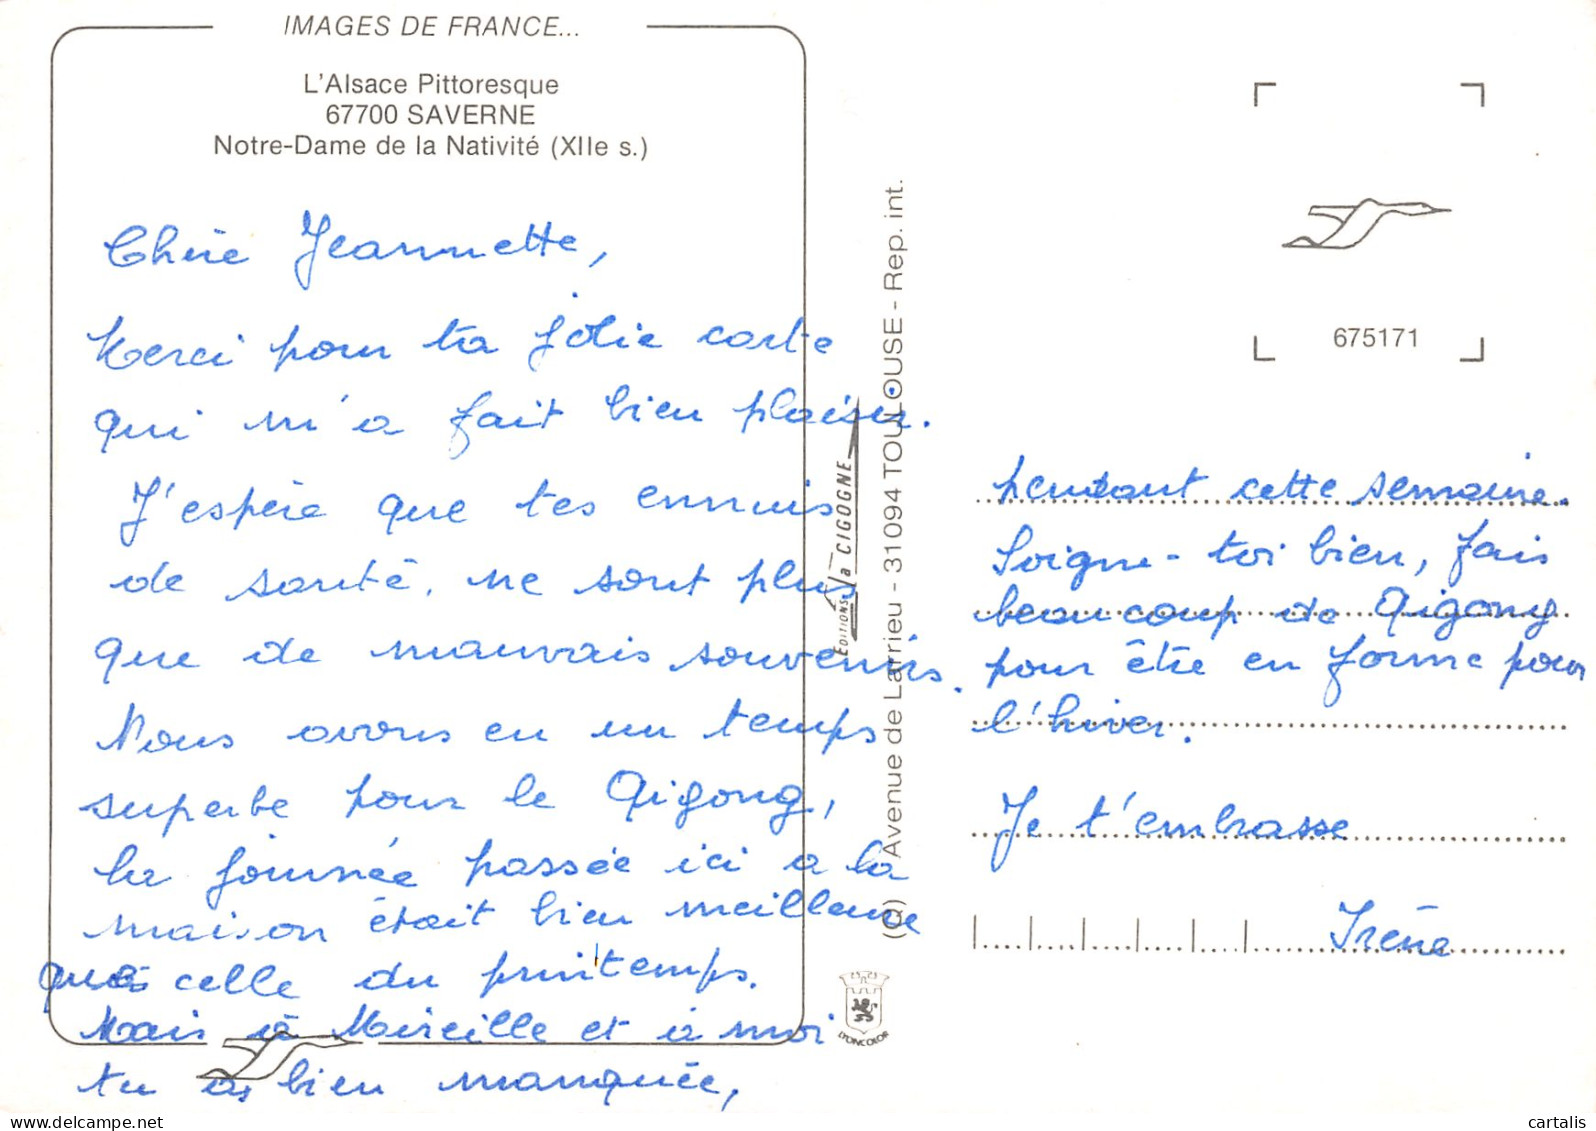 IMAGES DE FRANCE...
L'Alsace Pittoresque
67700 SAVERNE
Notre-Dame de la Nativité (XIIe s.)
Chère Jeannette,
Merci pour ta jolie carte
qui m'a fait bien plaisir.
J'espère que tes ennuis
de santé, ne sont plus
que de mauvais souvenirs.
Nous avons eu un temps
superbe pour le Qigong,
la journée passée ici à la
maison était bien meilleure
que celle du printemps.
Mais à Mireille et à moi
tu as bien manquée,
EDITIONS la CIGOGNE
(Q) Avenue de Larrieu - 31094 TOULOUSE - Rep. int.
LYONCOLOR
675171
pendant cette semaine.
Soigne-toi bien, fais
beaucoup de Qigong
pour être en forme pour
l'hiver.
Je t'embrasse
Irène
delcampe.net
cartalis